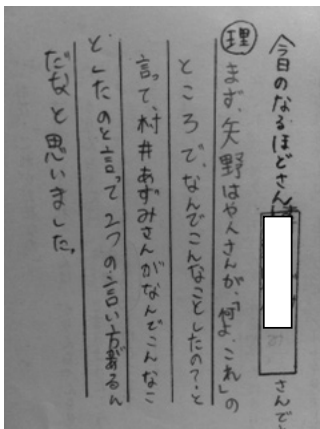 今日のなるほどさんは さんです
理 まず、矢野はやとさんが、「何よ、これ」の
ところで、なんでこんなことしたの?と
言って、村井あずみさんがなんでこんなこ
としたのと言って2つの言い方があるん
だなと思いました。